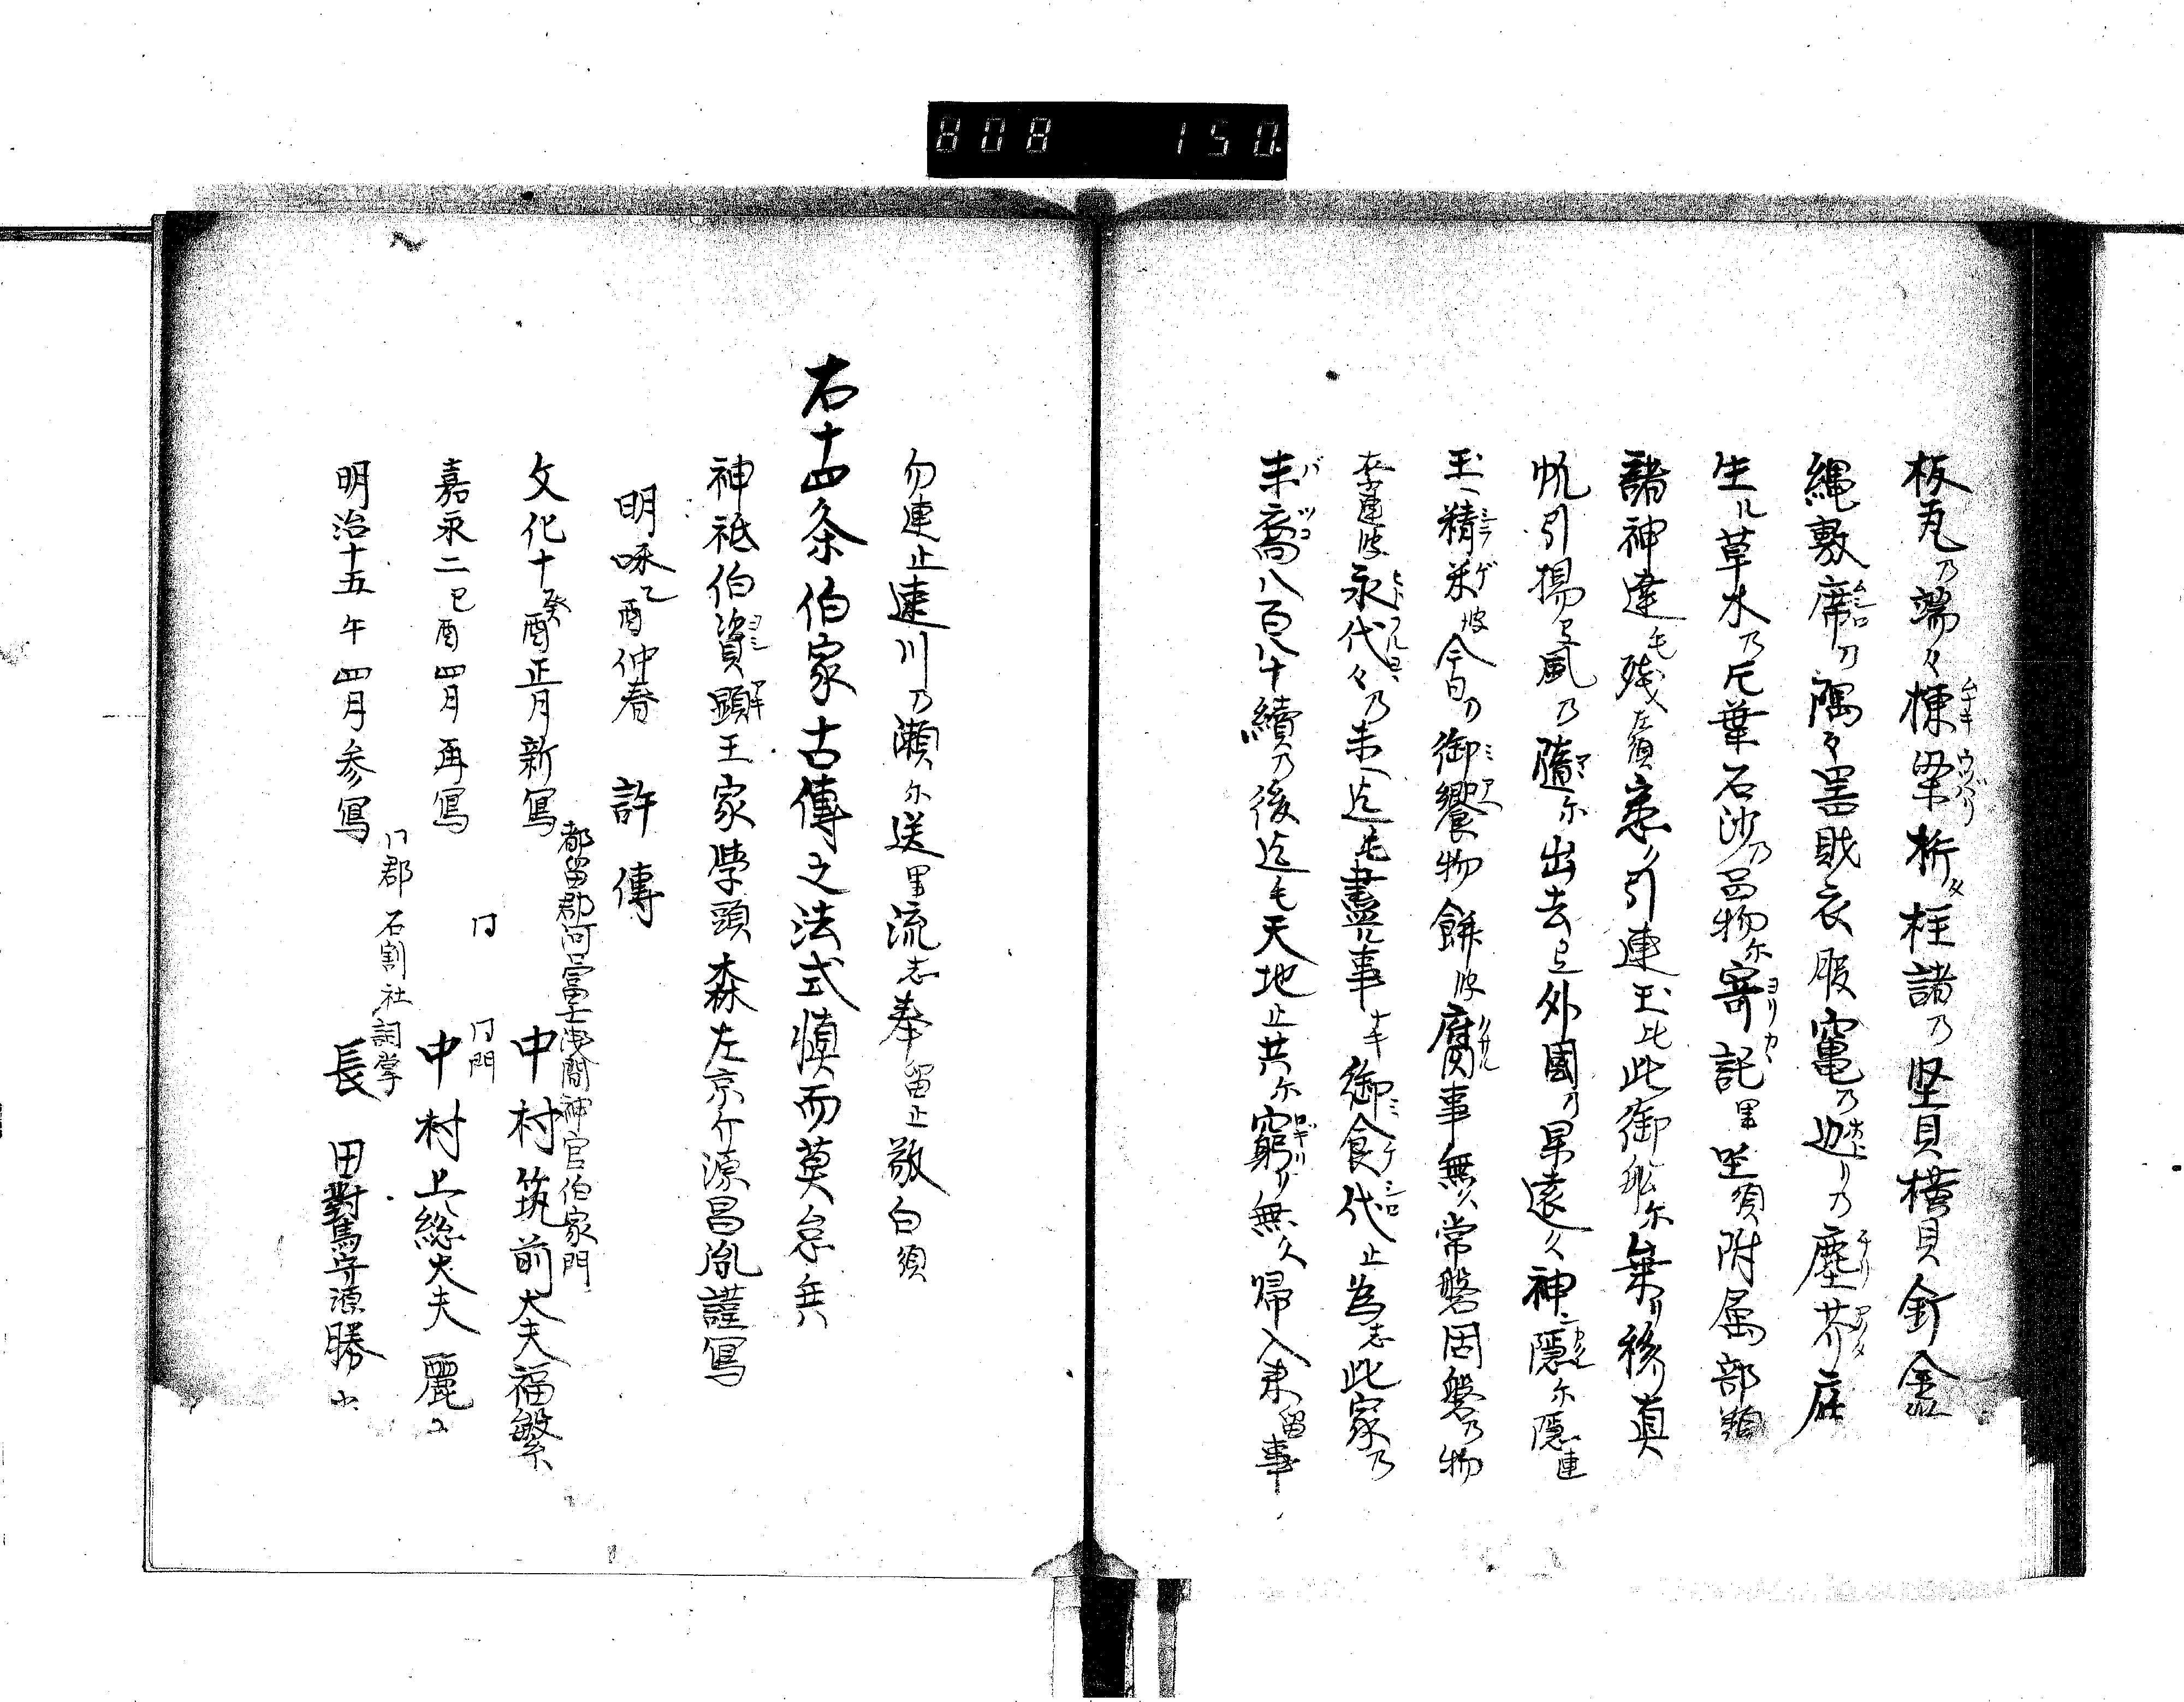 808 150
板瓦乃端々棟梁桁々柱諸乃竪貝横貝釘金
縄敷席乃隅々署財衣服竃乃辺リ乃塵芥庭
生ル草木乃片葉石沙乃品物尓寄託里坐須附属部類
諸神達毛残左須率久引連玉比此御船尓乗リ移リ真
帆引揚风乃隨尓出去外國乃果遠久神隠尓隠連
玉へ精米波今日乃御饗物餅波腐事無久常盤固盤乃物
奈連波永代々乃末迄毛盡ル事ナキ御食代止為志此家乃
末裔八百八十續乃後迄毛天地止共尓窮リ無久帰入来留事
勿連止速川乃瀬尓送里流志奉留止敬白須
右十四条伯家古傳之法式慎而莫怠矣
神祇伯資顕王家學頭森左京亮源昌胤謹寫
明和乙酉仲春 許傳
文化十癸酉正月新寫
都留郡河口冨士浅間神官伯家門
中村筑前大夫福繁
嘉永二己酉四月再寫
仝 仝門
中村上総大夫麗
明治十五午四月参寫
仝郡石割社詞掌
長田對馬守源勝